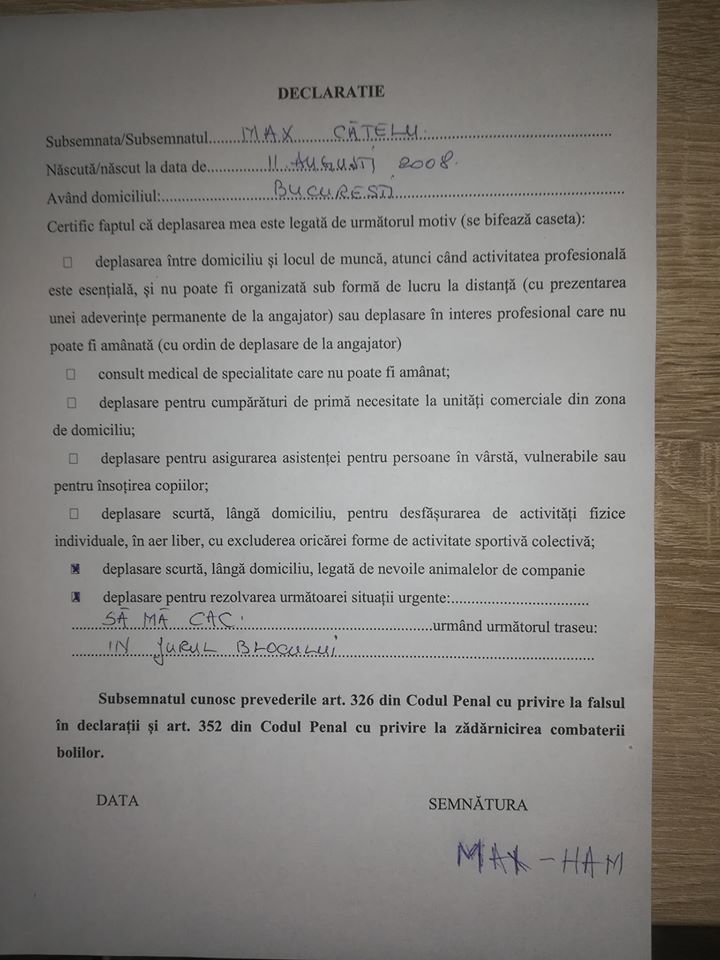 DECLARATIE
Subsemnata/Subsemnatul......MAX CĂȚELU..............................
Născută/născut la data de..........11 AUGUST 2008.
Având domiciliul:....................BUCUREȘTI..............................................
Certific faptul că deplasarea mea este legată de următorul motiv (se bifează caseta):
☐ deplasarea între domiciliu și locul de muncă, atunci când activitatea profesională
este esențială, și nu poate fi organizată sub formă de lucru la distanță (cu prezentarea
unei adeverințe permanente de la angajator) sau deplasare în interes profesional care nu
poate fi amânată (cu ordin de deplasare de la angajator)
☐ consult medical de specialitate care nu poate fi amânat;
☐ deplasare pentru cumpărături de primă necesitate la unități comerciale din zona
de domiciliu;
☐ deplasare pentru asigurarea asistenței pentru persoane în vârstă, vulnerabile sau
pentru însoțirea copiilor;
☐ deplasare scurtă, lângă domiciliu, pentru desfășurarea de activități fizice
individuale, în aer liber, cu excluderea oricărei forme de activitate sportivă colectivă;
☒ deplasare scurtă, lângă domiciliu, legată de nevoile animalelor de companie
☒ deplasare pentru rezolvarea următoarei situații urgente:..............................
......SĂ MĂ CAC.......................................urmând următorul traseu:
........IN JURUL BLOCULUI..................................................
Subsemnatul cunosc prevederile art. 326 din Codul Penal cu privire la falsul
în declarații și art. 352 din Codul Penal cu privire la zădărnicirea combaterii
bolilor.
DATA SEMNĂTURA
MAX - HAM